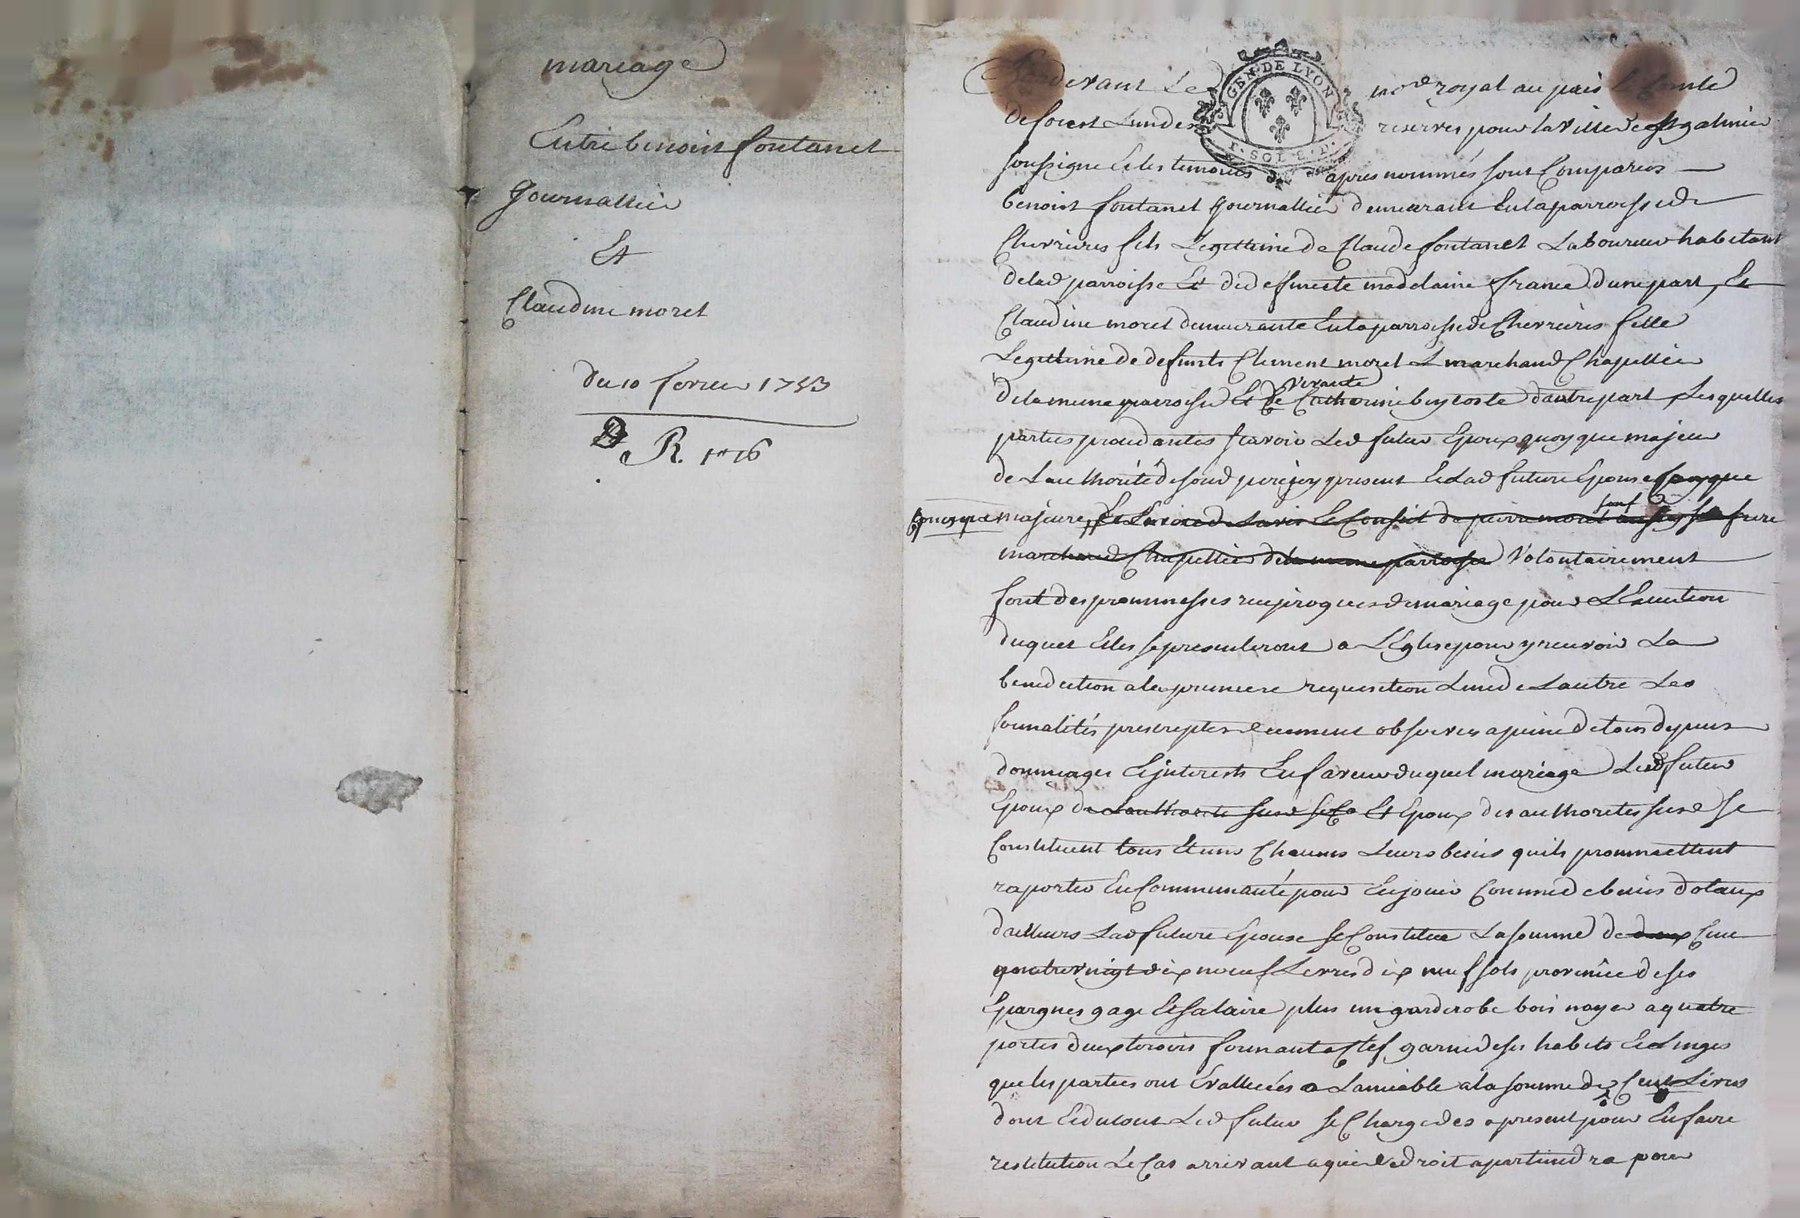 mariage
Entre benoist fontanet
Journallier
Et
Claudine moret
du 10 fevrier 1783
R.
Pardevant Le no.re royal au païs & Comté
GEN. DE LYON
SOL
de forest Lun des reservés pour la ville de St galmier
soussigné Et les temoins apres nommés sont Comparus
benoist fontanet Journallier demeurant En la parroisse de
Chevrieres fils Legittime de Claude fontanet Laboureur habitant
de lad parroisse Et de defuncte madelaine france dune part, Et
Claudine moret demeurante En la parroisse de Chevrieres fille
Legittime de defunts Clement moret marchand Chapellier
vivante
de la meme parroisse Et de Catherine dautre part, Lesquelles
parties procedantes scavoir Led futur Epoux quoyque majeur
de Lauthorité de sond pere icy present Et Lad future Epouse
quoyque majeure, de Lavis Et Conseil de pierre moret son frere
marchand Chapellier de la meme parroisse Volontairement
font des prommesses reciproques de mariage pour LExecution
duquel Elles se presenteront a LEglise pour y recevoir La
benediction a la premiere requisition Lun de Lautre Les
formalités prescriptes duement observées a peine de tous depens
dommages Et interests En faveur duquel mariage Led futur
Epoux de Lauthorité susd Et Epoux des authorités susd se
Constituent tous Et uns Chacuns Leurs biens quils prommettent
raporter En Communauté pour En jouir Comme de biens dotaux
dailleurs Lad future Epouse se Constitue La somme de deux Cent
quatrevingt dix neuf Livres dix neuf sols provenüe de ses
Epargnes gage Et Salaire plus un garderobe bois noyer a quatre
portes deux tiroirs fermant a Clef garnie de ses habits Et Linges
que les parties ont Evalluées a Lamiable a la somme de Cent Livres
dont Et du tout Led futur se Charge des apresent pour En faire
restitution Le Cas arrivant a qui de droit apartiendra pour